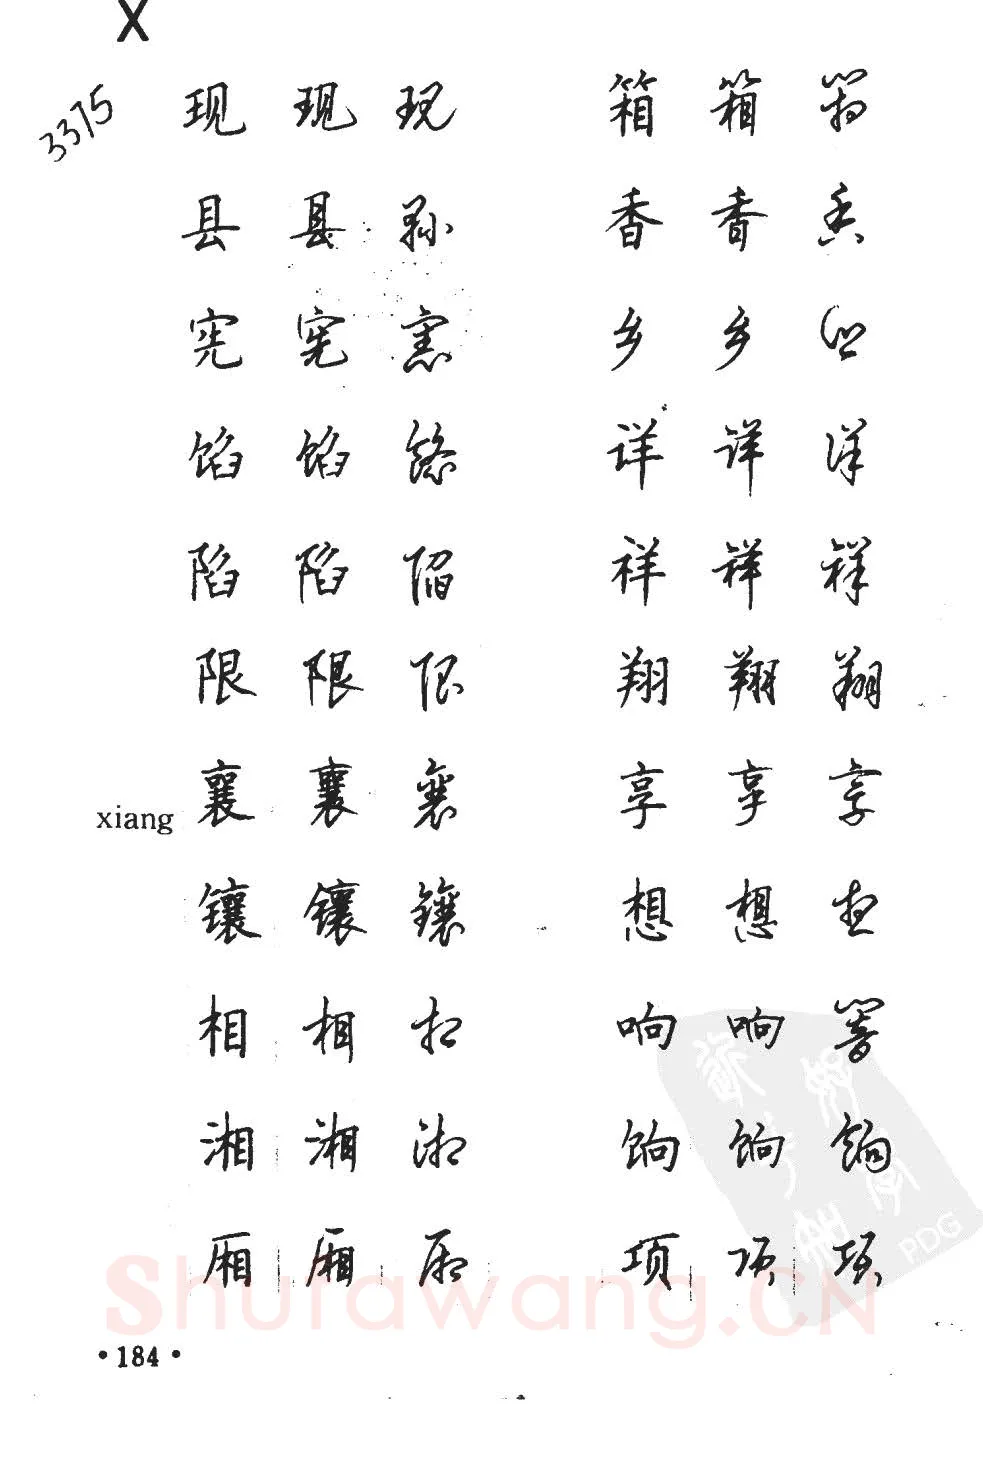 X
3375
现 现 现 箱 箱 箱
县 县 县 香 香 香
宪 宪 宪 乡 乡 乡
馅 馅 馅 详 详 详
陷 陷 陷 祥 祥 祥
限 限 限 翔 翔 翔
xiang 襄 襄 襄 享 享 享
镶 镶 镶 想 想 想
相 相 相 响 响 响
湘 湘 湘 饷 饷 饷
厢 厢 厢 项 项 项
Shufawang.CN
PDG
• 184 •